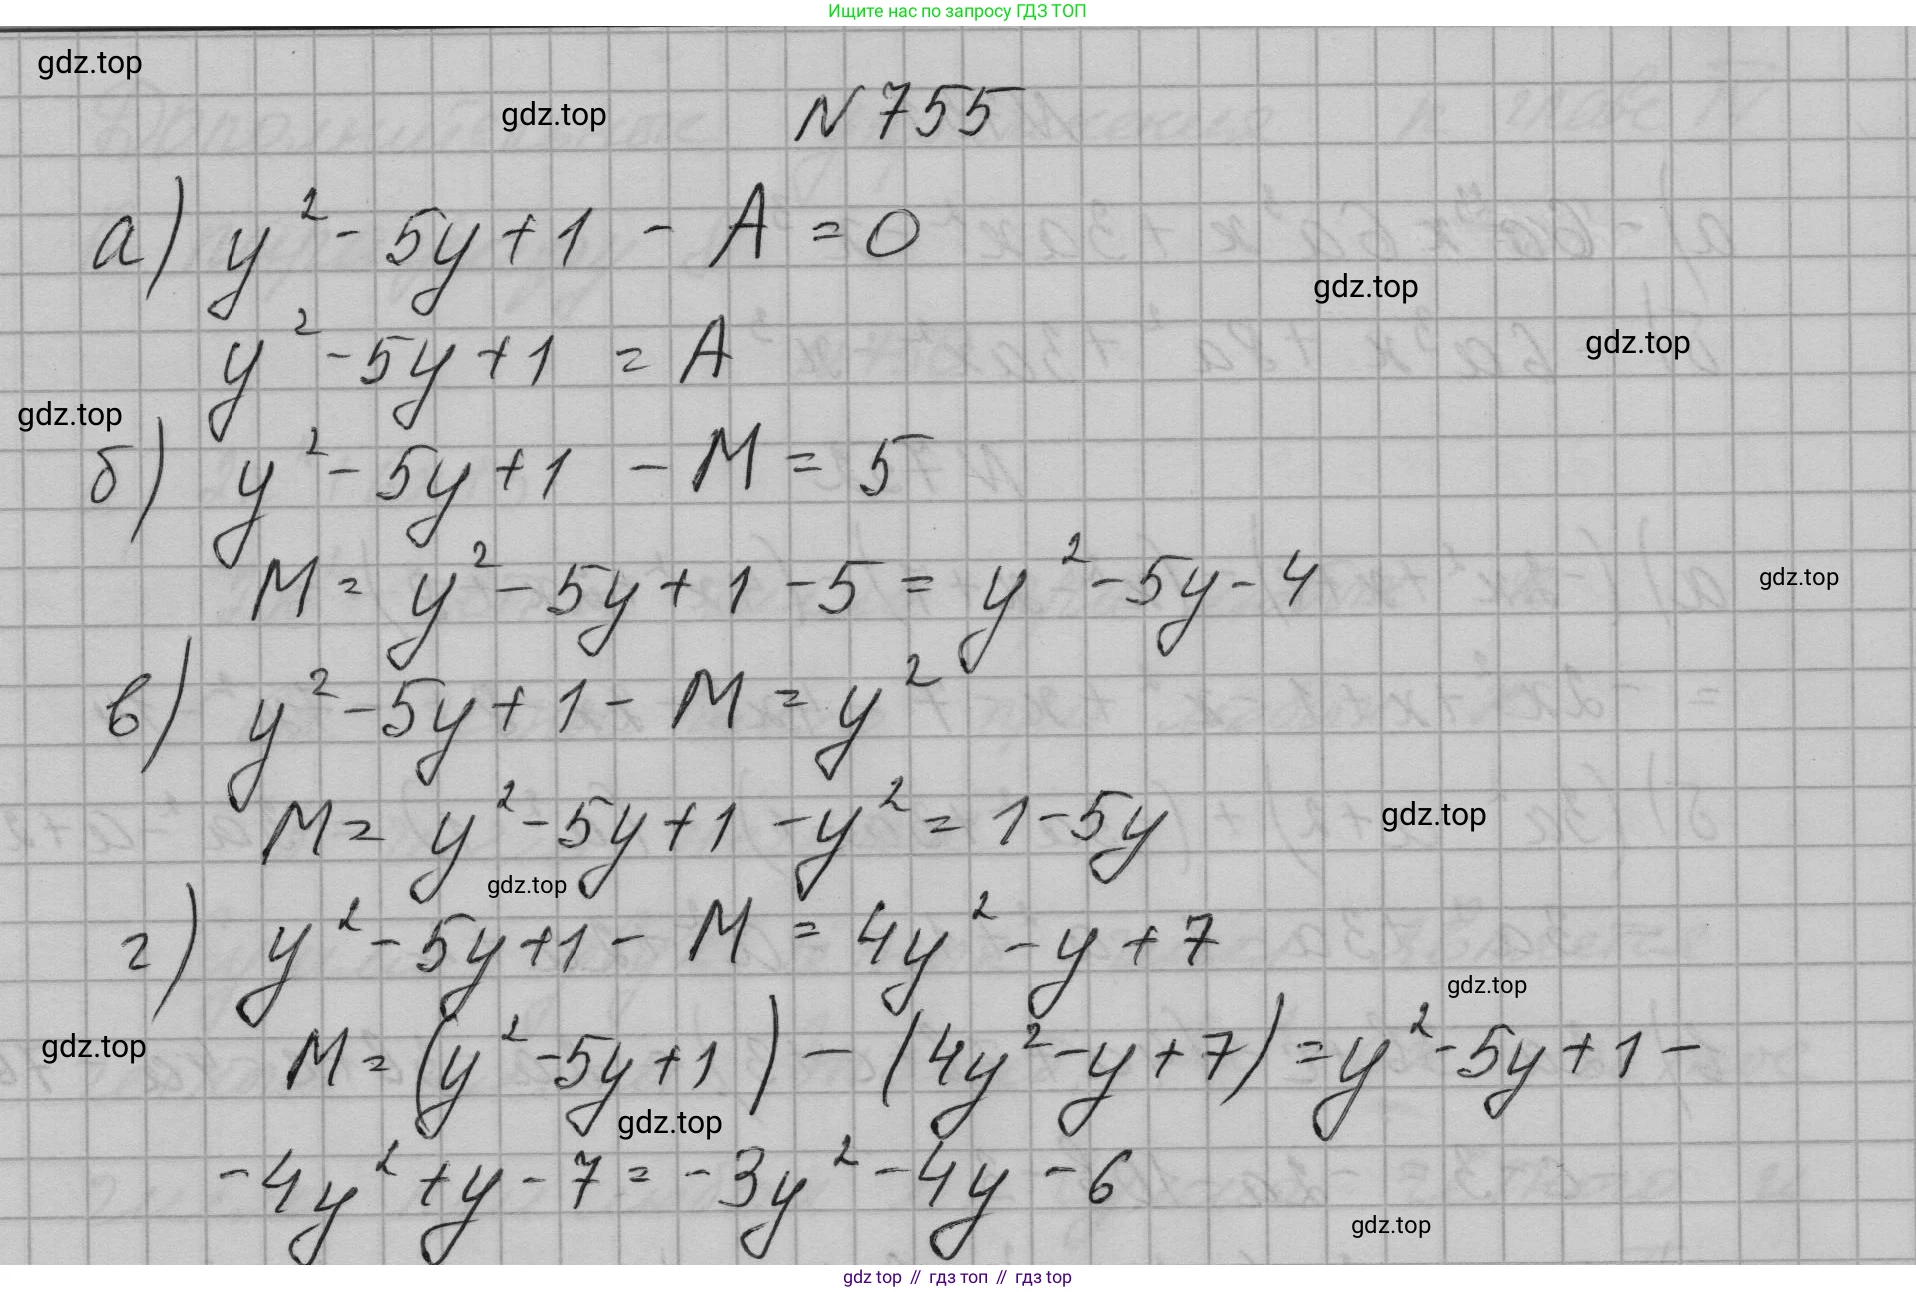 Ищите нас по запросу ГДЗ ТОП
gdz.top
gdz.top
N 755
а) y² - 5y + 1 - A = 0
gdz.top
y² - 5y + 1 = A
gdz.top
gdz.top
б) y² - 5y + 1 - M = 5
M = y² - 5y + 1 - 5 = y² - 5y - 4
gdz.top
в) y² - 5y + 1 - M = y²
M = y² - 5y + 1 - y² = 1 - 5y
gdz.top
gdz.top
г) y² - 5y + 1 - M = 4y² - y + 7
gdz.top
gdz.top
M = (y² - 5y + 1) - (4y² - y + 7) = y² - 5y + 1 -
gdz.top
- 4y² + y - 7 = - 3y² - 4y - 6
gdz.top
gdz top // гдз топ // гдз top